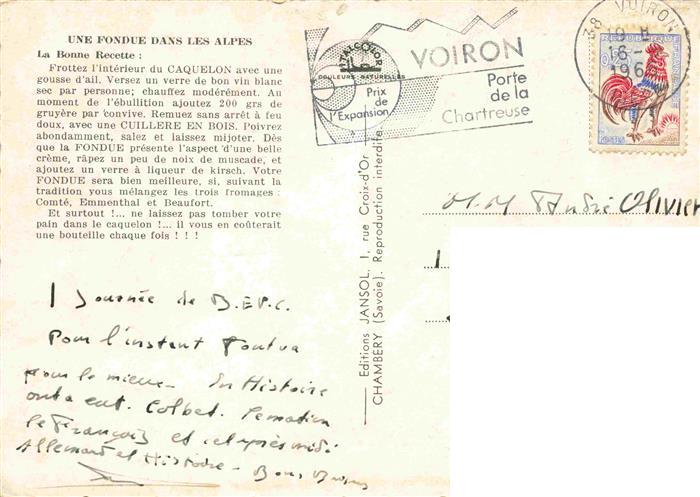 UNE FONDUE DANS LES ALPES
La Bonne Recette :
Frottez l'intérieur du CAQUELON avec une
gousse d'ail. Versez un verre de bon vin blanc
sec par personne; chauffez modérément. Au
moment de l'ébullition ajoutez 200 grs de
gruyère par convive. Remuez sans arrêt à feu
doux, avec une CUILLERE EN BOIS. Poivrez
abondamment, salez et laissez mijoter. Dès
que la FONDUE présente l'aspect d'une belle
crème, râpez un peu de noix de muscade, et
ajoutez un verre à liqueur de kirsch. Votre
FONDUE sera bien meilleure, si, suivant la
tradition vous mélangez les trois fromages :
Comté, Emmenthal et Beaufort.
Et surtout !... ne laissez pas tomber votre
pain dans le caquelon !... il vous en coûterait
une bouteille chaque fois ! ! !
1 Journée de B.E.P.C.
Pour l'instant tout va
pour le mieux - En Histoire
on a eut. Colbet. Ce matin
le Français et cet après midi
Allemand et Histoire - Bons Baisers
Editions JANSOL, 1, rue Croix-d'Or
CHAMBERY (Savoie). Reproduction interdite.
COULEURS NATURELLES
Prix
de
l'Expansion
VOIRON
Porte
de la
Chartreuse
38 VOIRON
16-
196
M.M André Olivier